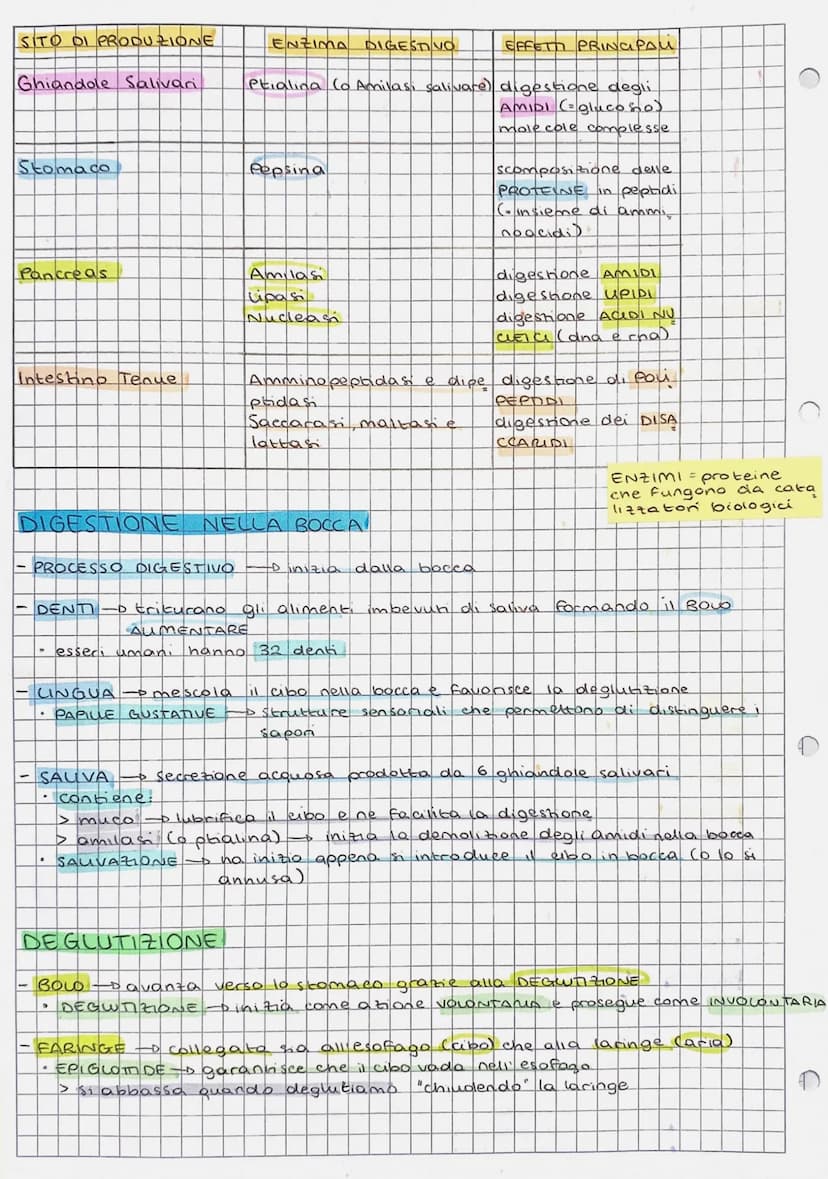 SITO DI PRODUZIONE ENZIMA DIGESTIVO EFFETTI PRINCIPALI
Ghiandole Salivari Ptialina (o Amilasi salivare) digestione degli
AMIDI (=glucosio)
molecole complesse
Stomaco Pepsina scomposizione delle
PROTEINE in peptidi
(=insieme di ammi
noacidi)
Pancreas Amilasi digestione AMIDI
Lipasi digestione LIPIDI
Nucleasi digestione ACIDI NU
CLEICI (dna e rna)
Intestino Tenue Amminopeptidasi e dipe digestione di POLI
ptidasi PEPTIDI
Saccarasi, maltasi e digestione dei DISA
lattasi CCARIDI
ENZIMI = proteine
che fungono da cata
lizzatori biologici
DIGESTIONE NELLA BOCCA
- PROCESSO DIGESTIVO → inizia dalla bocca
- DENTI → triturano gli alimenti imbevuti di saliva formando il BOLO
ALIMENTARE
• esseri umani hanno 32 denti
- LINGUA → mescola il cibo nella bocca e favorisce la deglutizione
• PAPILLE GUSTATIVE → strutture sensoriali che permettono di distinguere i
sapori
- SALIVA → secrezione acquosa prodotta da 6 ghiandole salivari
• contiene:
> muco → lubrifica il cibo e ne facilita la digestione
> amilasi (o ptialina) → inizia la demolizione degli amidi nella bocca
• SALIVAZIONE → ha inizio appena si introduce il cibo in bocca (o lo si
annusa)
DEGLUTIZIONE
- BOLO → avanza verso lo stomaco grazie alla DEGLUTIZIONE
• DEGLUTIZIONE → inizia come azione VOLONTARIA e prosegue come INVOLONTARIA
- FARINGE → collegata sia all'esofago (cibo) che alla laringe (aria)
• EPIGLOTTIDE → garantisce che il cibo vada nell'esofago
> si abbassa quando deglutiamo "chiudendo" la laringe